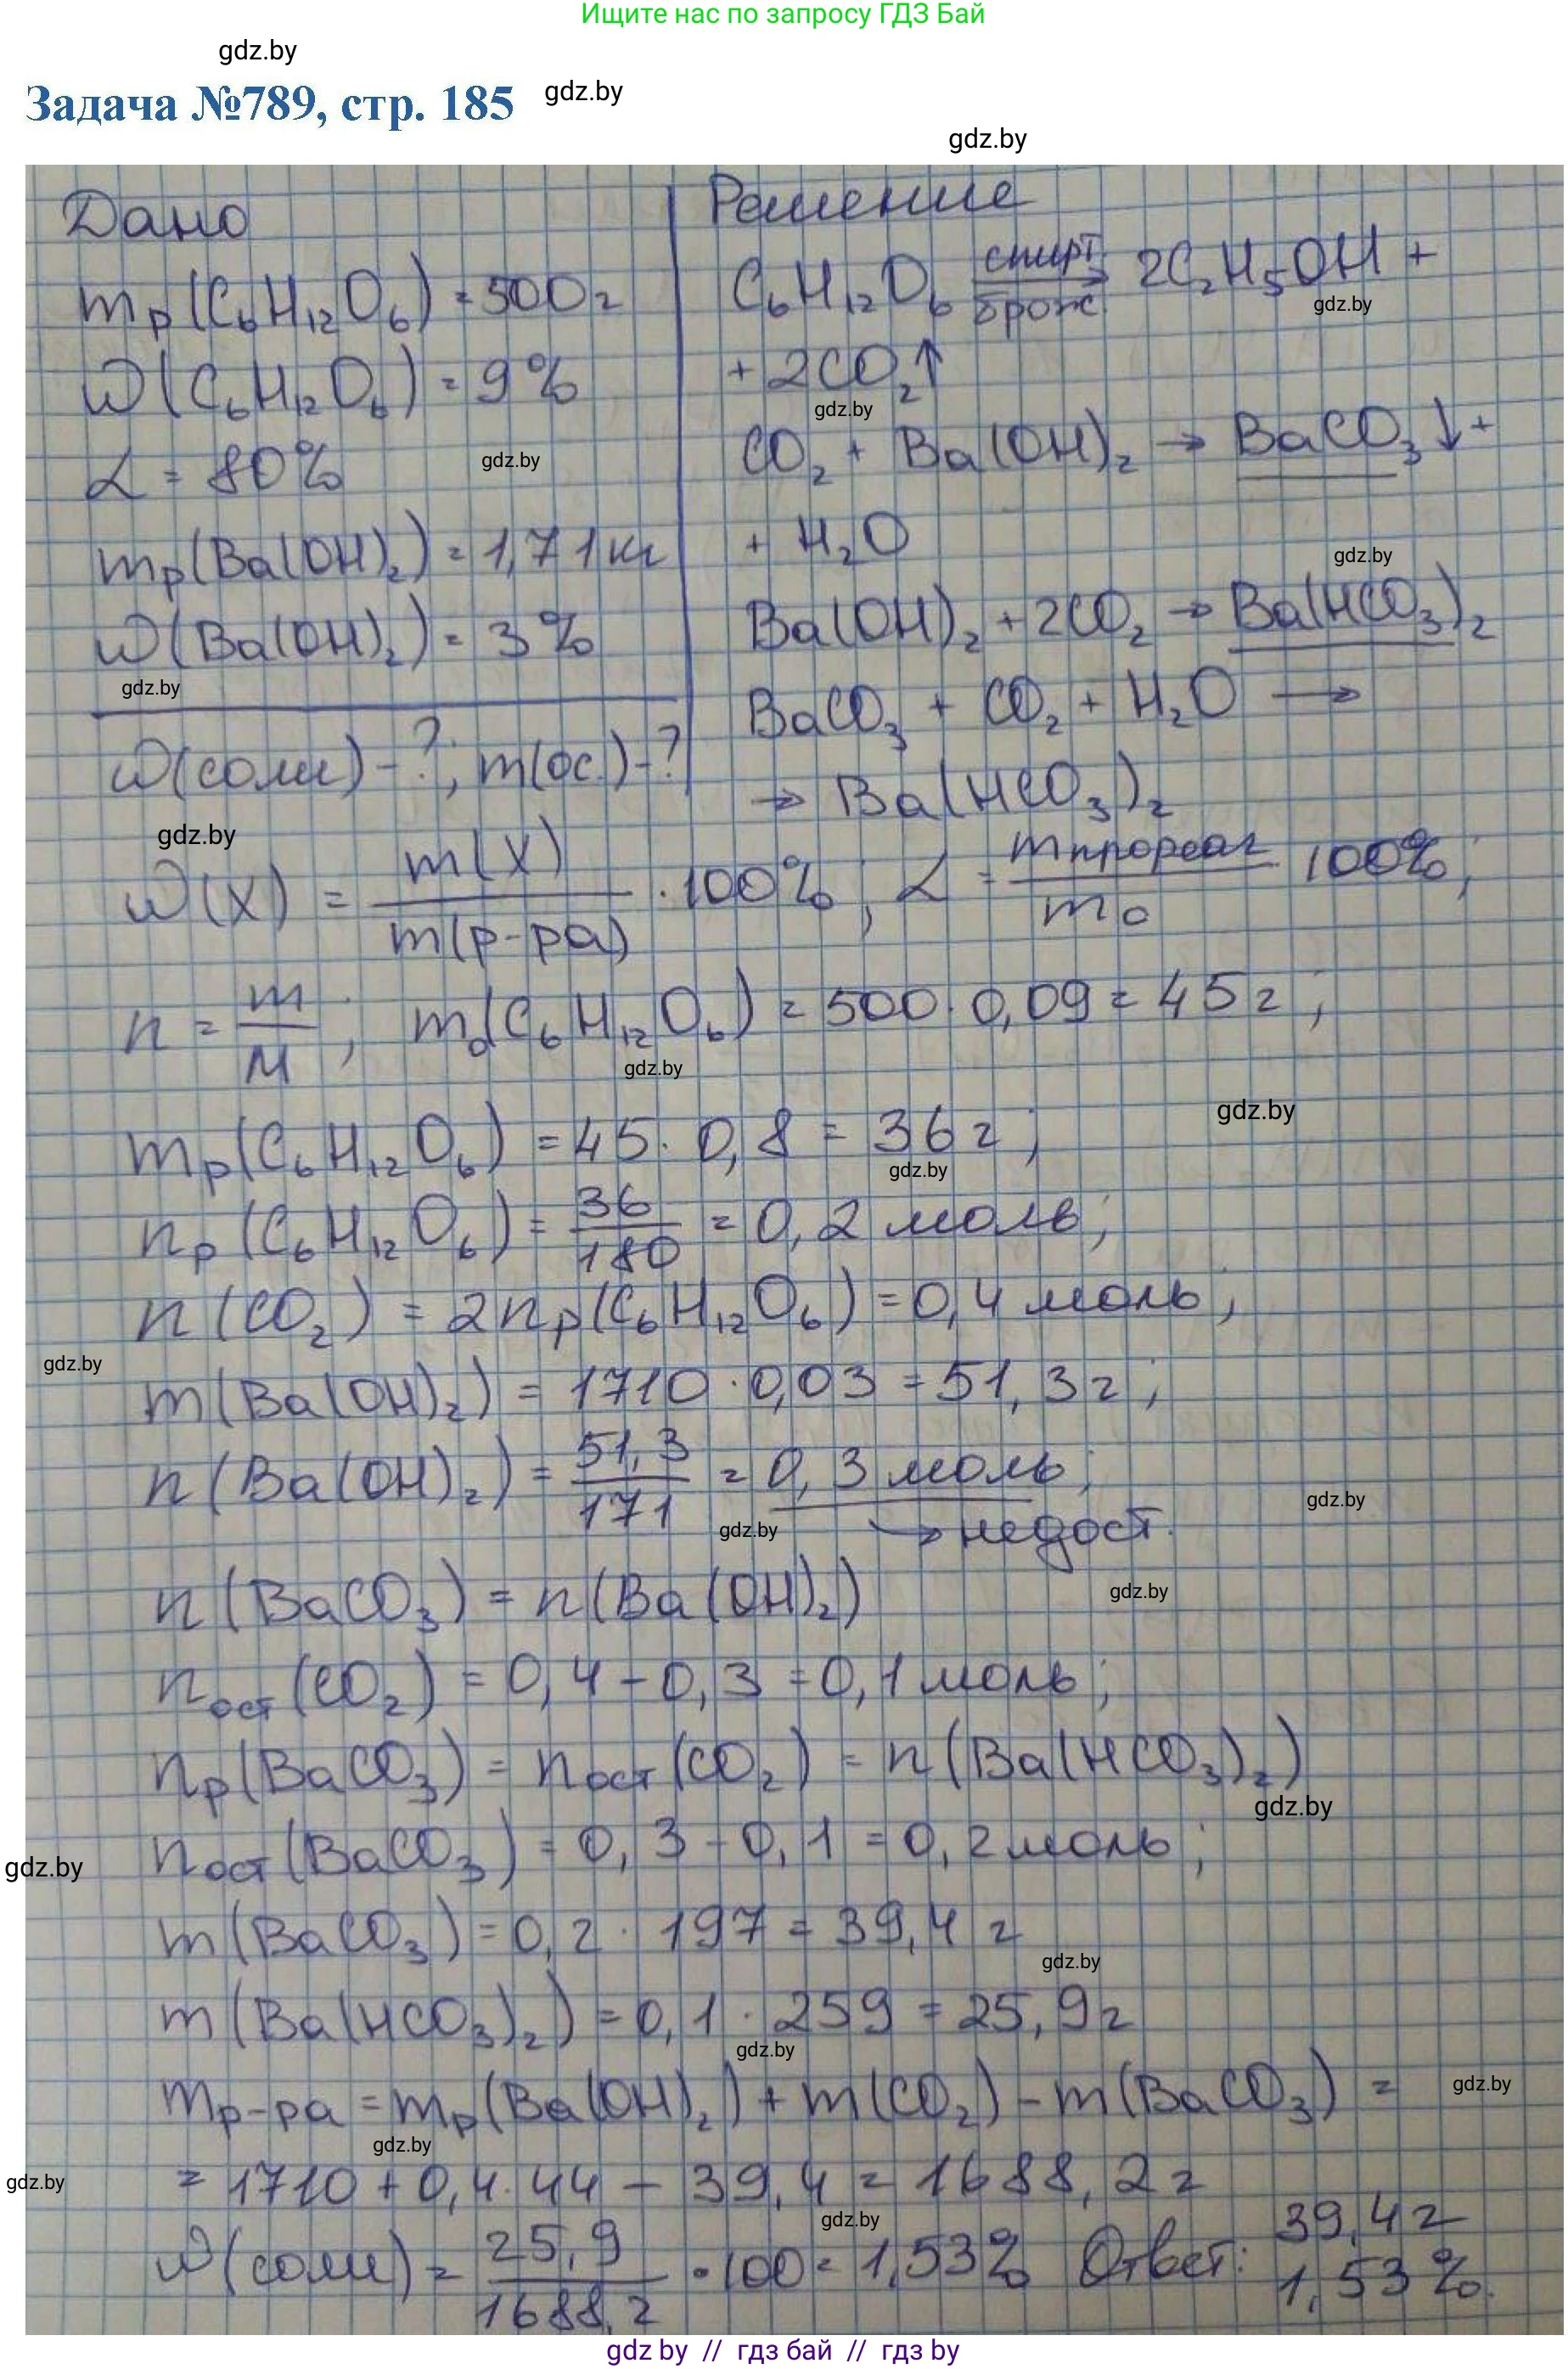 Ищите нас по запросу ГДЗ Бай
gdz.by
Задача №789, стр. 185 gdz.by
gdz.by
Дано
mр(C₆H₁₂O₆) = 500г
ω(C₆H₁₂O₆) = 9%
α = 80%
gdz.by
mр(Ba(OH)₂) = 1,71 кг
ω(Ba(OH)₂) = 3%
gdz.by
ω(соли) - ?; m(ос.) - ?
Решение
C₆H₁₂O₆ спирт. → брож. 2C₂H₅OH +
gdz.by
+ 2CO₂↑
gdz.by
CO₂ + Ba(OH)₂ → BaCO₃↓ +
+ H₂O
gdz.by
Ba(OH)₂ + 2CO₂ → Ba(HCO₃)₂
BaCO₃ + CO₂ + H₂O →
→ Ba(HCO₃)₂
gdz.by
ω(X) = m(X) / m(р-ра) · 100%; α = mпрореаг / m₀ · 100%;
n = m / M; m₀(C₆H₁₂O₆) = 500 · 0,09 = 45г;
gdz.by
gdz.by
mр(C₆H₁₂O₆) = 45 · 0,8 = 36г;
gdz.by
nр(C₆H₁₂O₆) = 36 / 180 = 0,2 моль;
n(CO₂) = 2nр(C₆H₁₂O₆) = 0,4 моль;
gdz.by
m(Ba(OH)₂) = 1710 · 0,03 = 51,3г;
n(Ba(OH)₂) = 51,3 / 171 = 0,3 моль;
gdz.by
gdz.by
→ недост.
n(BaCO₃) = n(Ba(OH)₂)
gdz.by
nост(CO₂) = 0,4 - 0,3 = 0,1 моль;
nр(BaCO₃) = nост(CO₂) = n(Ba(HCO₃)₂)
gdz.by
gdz.by
nост(BaCO₃) = 0,3 - 0,1 = 0,2 моль;
m(BaCO₃) = 0,2 · 197 = 39,4 г
gdz.by
m(Ba(HCO₃)₂) = 0,1 · 259 = 25,9г
gdz.by
mр-ра = mр(Ba(OH)₂) + m(CO₂) - m(BaCO₃) =
gdz.by
gdz.by
gdz.by
= 1710 + 0,4 · 44 - 39,4 = 1688,2 г
gdz.by
ω(соли) = 25,9 / 1688,2 · 100 = 1,53% Ответ: 39,4г
1,53%.
gdz.by // гдз бай // гдз by